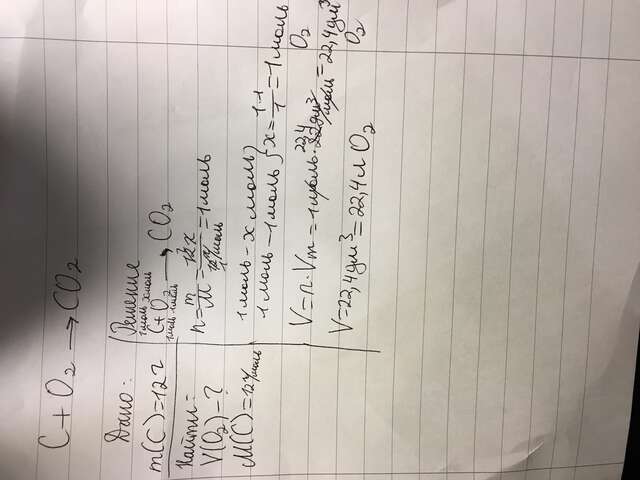 C + O₂ → CO₂
Дано:
m(C) = 12 г
Найти:
V(O₂) – ?
M(C) = 12 г/моль
Решение
1 моль x моль
C + O₂ → CO₂
1 моль 1 моль
n = m/M = 12 г / 12 г/моль = 1 моль
1 моль – x моль
1 моль – 1 моль } x = 1·1/1 = 1 моль
O₂
V = n · Vm = 1 моль · 22,4 дм³/моль = 22,4 дм³
O₂
V = 22,4 дм³ = 22,4 л O₂